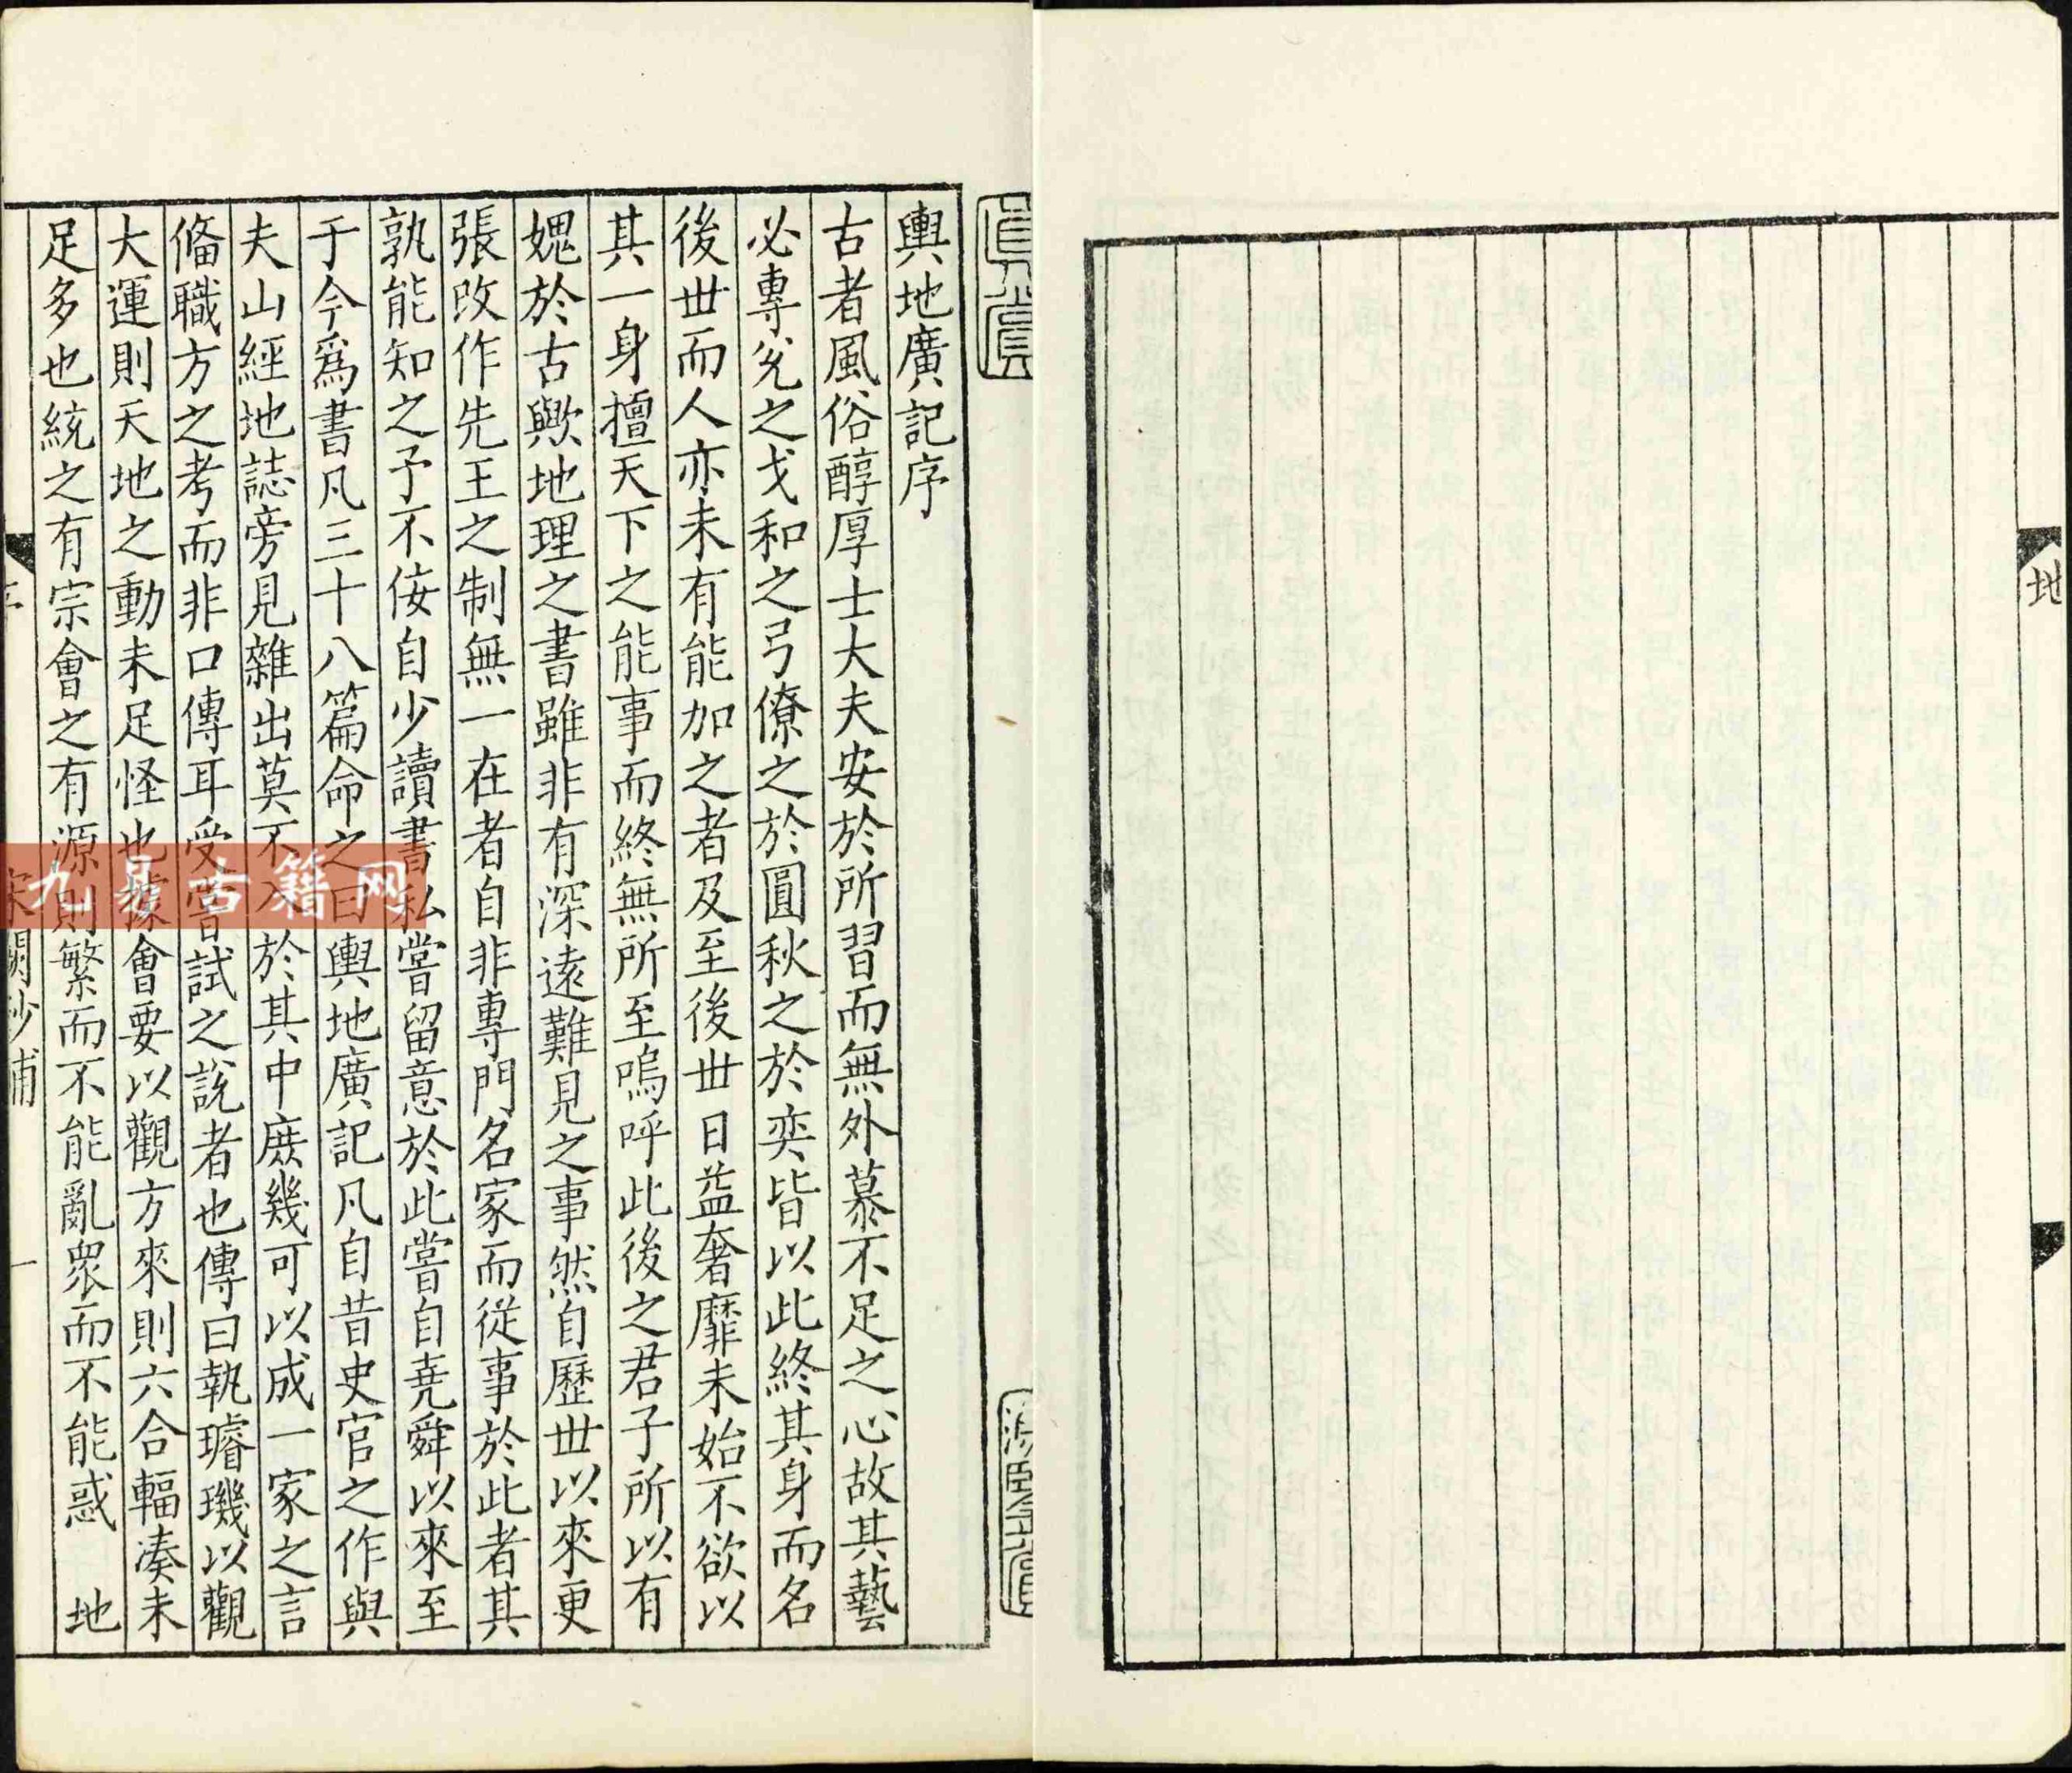 地
輿地廣記序
古者風俗醇厚士大夫安於所習而無外慕不足之心故其藝
必專兊之戈和之弓僚之於圓秋之於奕皆以此終其身而名
後世而人亦未有能加之者及至後世日益奢靡未始不欲以
其一身擅天下之能事而終無所至嗚呼此後之君子所以有
媿於古歟地理之書雖非有深遠難見之事然自歷世以來更
張改作先王之制無一在者自非專門名家而從事於此者其
孰能知之予不佞自少讀書私嘗留意於此嘗自堯舜以來至
于今爲書凡三十八篇命之曰輿地廣記凡自昔史官之作與
夫山經地誌旁見雜出莫不入於其中庶幾可以成一家之言
僃職方之考而非口傳耳受嘗試之說者也傳曰執璿璣以觀
大運則天地之動未足怪也據會要以觀方來則六合輻凑未
足多也統之有宗會之有源則繁而不能亂衆而不能惑 地
宋闕抄補
一
九易古籍网